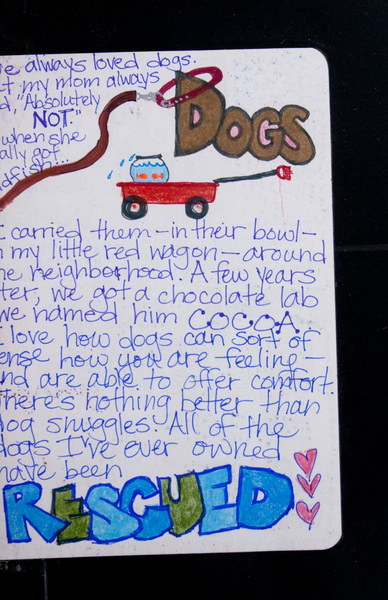 always loved dogs.
my mom always
"Absolutely
NOT."
when she
got
DOGS
I carried them - in their bowl -
my little red wagon - around
neighborhood. A few years
we got a chocolate lab
we named him COCOA.
I love how dogs can sort of
how you are feeling -
and are able to offer comfort.
There's nothing better than
dog snuggles. All of the
dogs I've ever owned
have been
RESCUED